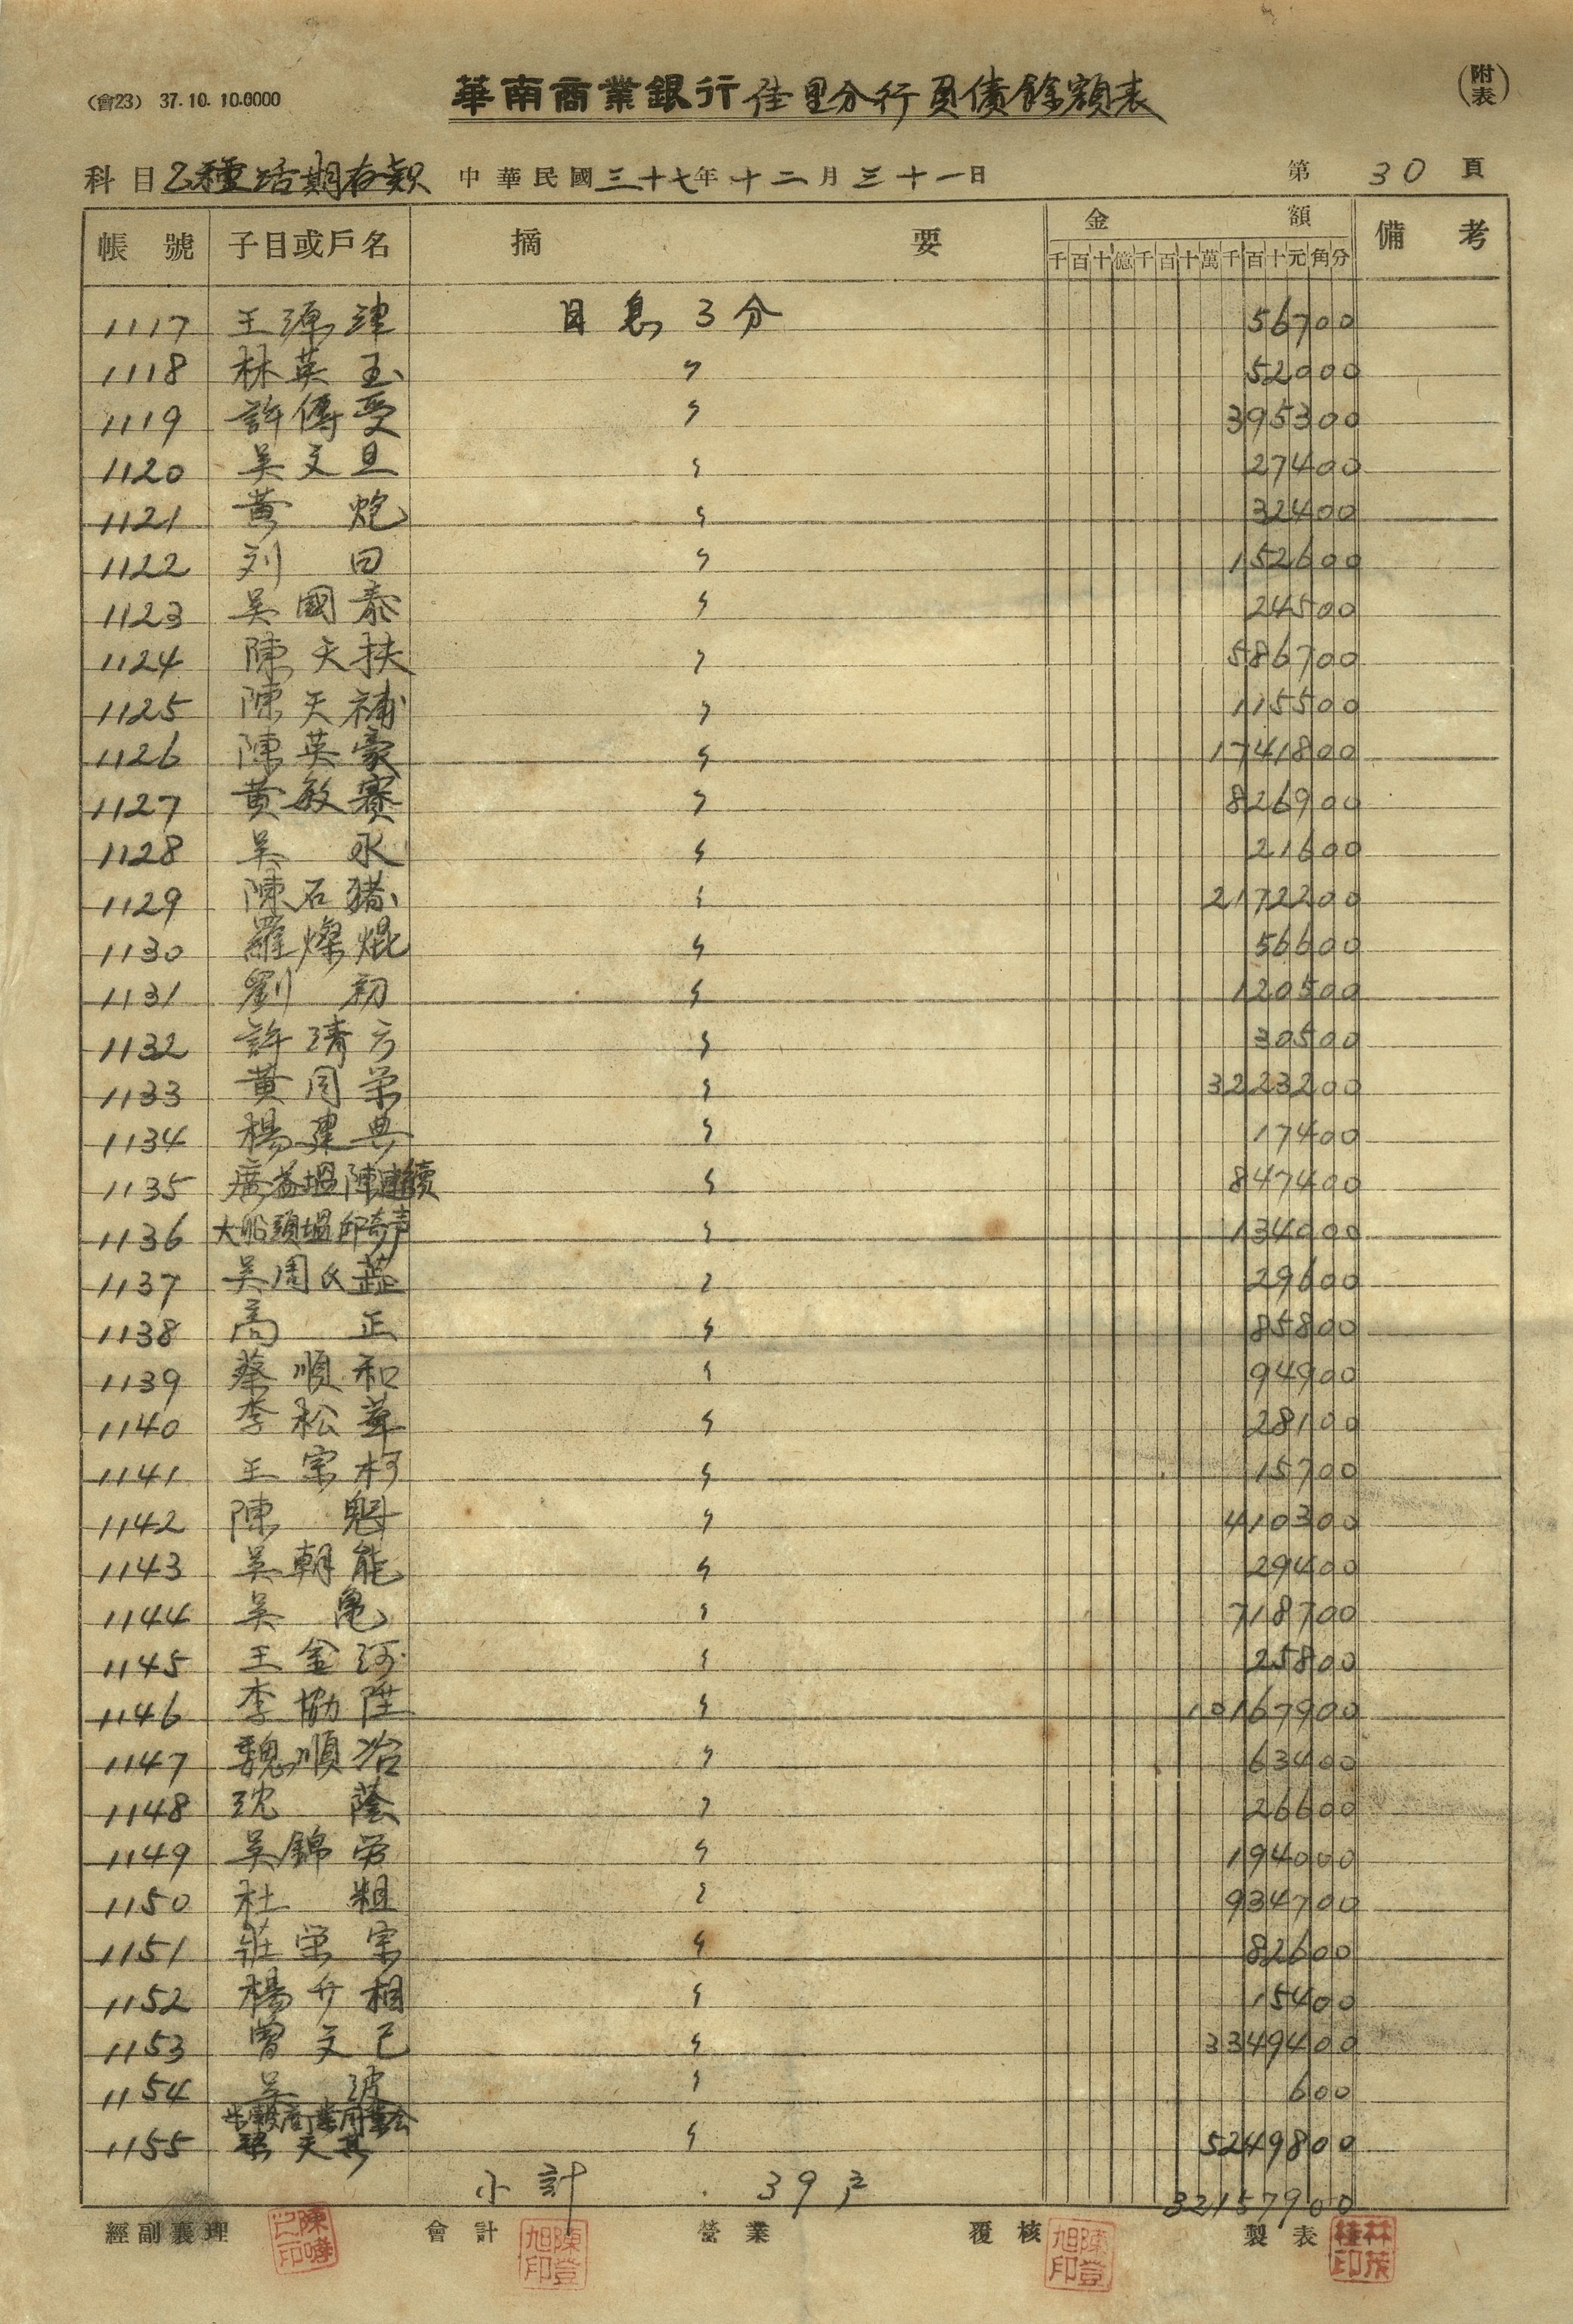 (會23) 37.10.10.0000
華南商業銀行佳里分行負債餘額表
(附表)
科目乙種活期存款 中華民國三十七年十二月三十一日 第30頁
帳號 子目或戶名 摘要 金額 備考
千百十億千百十萬千百十元角分
1117 王源津 日息3分 56700
1118 林英玉 〃 52000
1119 許傳受 〃 395300
1120 吳文旦 〃 27400
1121 黃炮 〃 32400
1122 刘田 〃 152600
1123 吳國泰 〃 24500
1124 陳天扶 〃 586700
1125 陳天補 〃 115500
1126 陳英豪 〃 1741800
1127 黃敏賽 〃 826900
1128 吳永 〃 21600
1129 陳石豬 〃 2172200
1130 羅燦焜 〃 56600
1131 劉初 〃 120500
1132 許清方 〃 30500
1133 黃周荣 〃 3223200
1134 楊建典 〃 17400
1135 廣益塭陳連續 〃 847400
1136 大船頭塭邱奇声 〃 134000
1137 吳周氏蕋 〃 29600
1138 高正 〃 85800
1139 蔡順和 〃 94900
1140 李松茸 〃 28100
1141 王宗柯 〃 15700
1142 陳魁 〃 410300
1143 吳朝能 〃 29400
1144 吳亀 〃 718700
1145 王金河 〃 25800
1146 李協陞 〃 10167900
1147 魏順治 〃 63400
1148 沈蔭 〃 26600
1149 吳錦労 〃 194000
1150 杜粗 〃 934700
1151 莊榮宗 〃 82600
1152 楊介相 〃 15400
1153 曾文己 〃 3349400
1154 吳波 〃 600
米穀商業同業公会
1155 梁天真 〃 5249800
小計 39戶 32157900
經副襄理 會計 營業 覆核 製表
陳嘩已印 陳登旭印 陳登旭印 林茂桂印